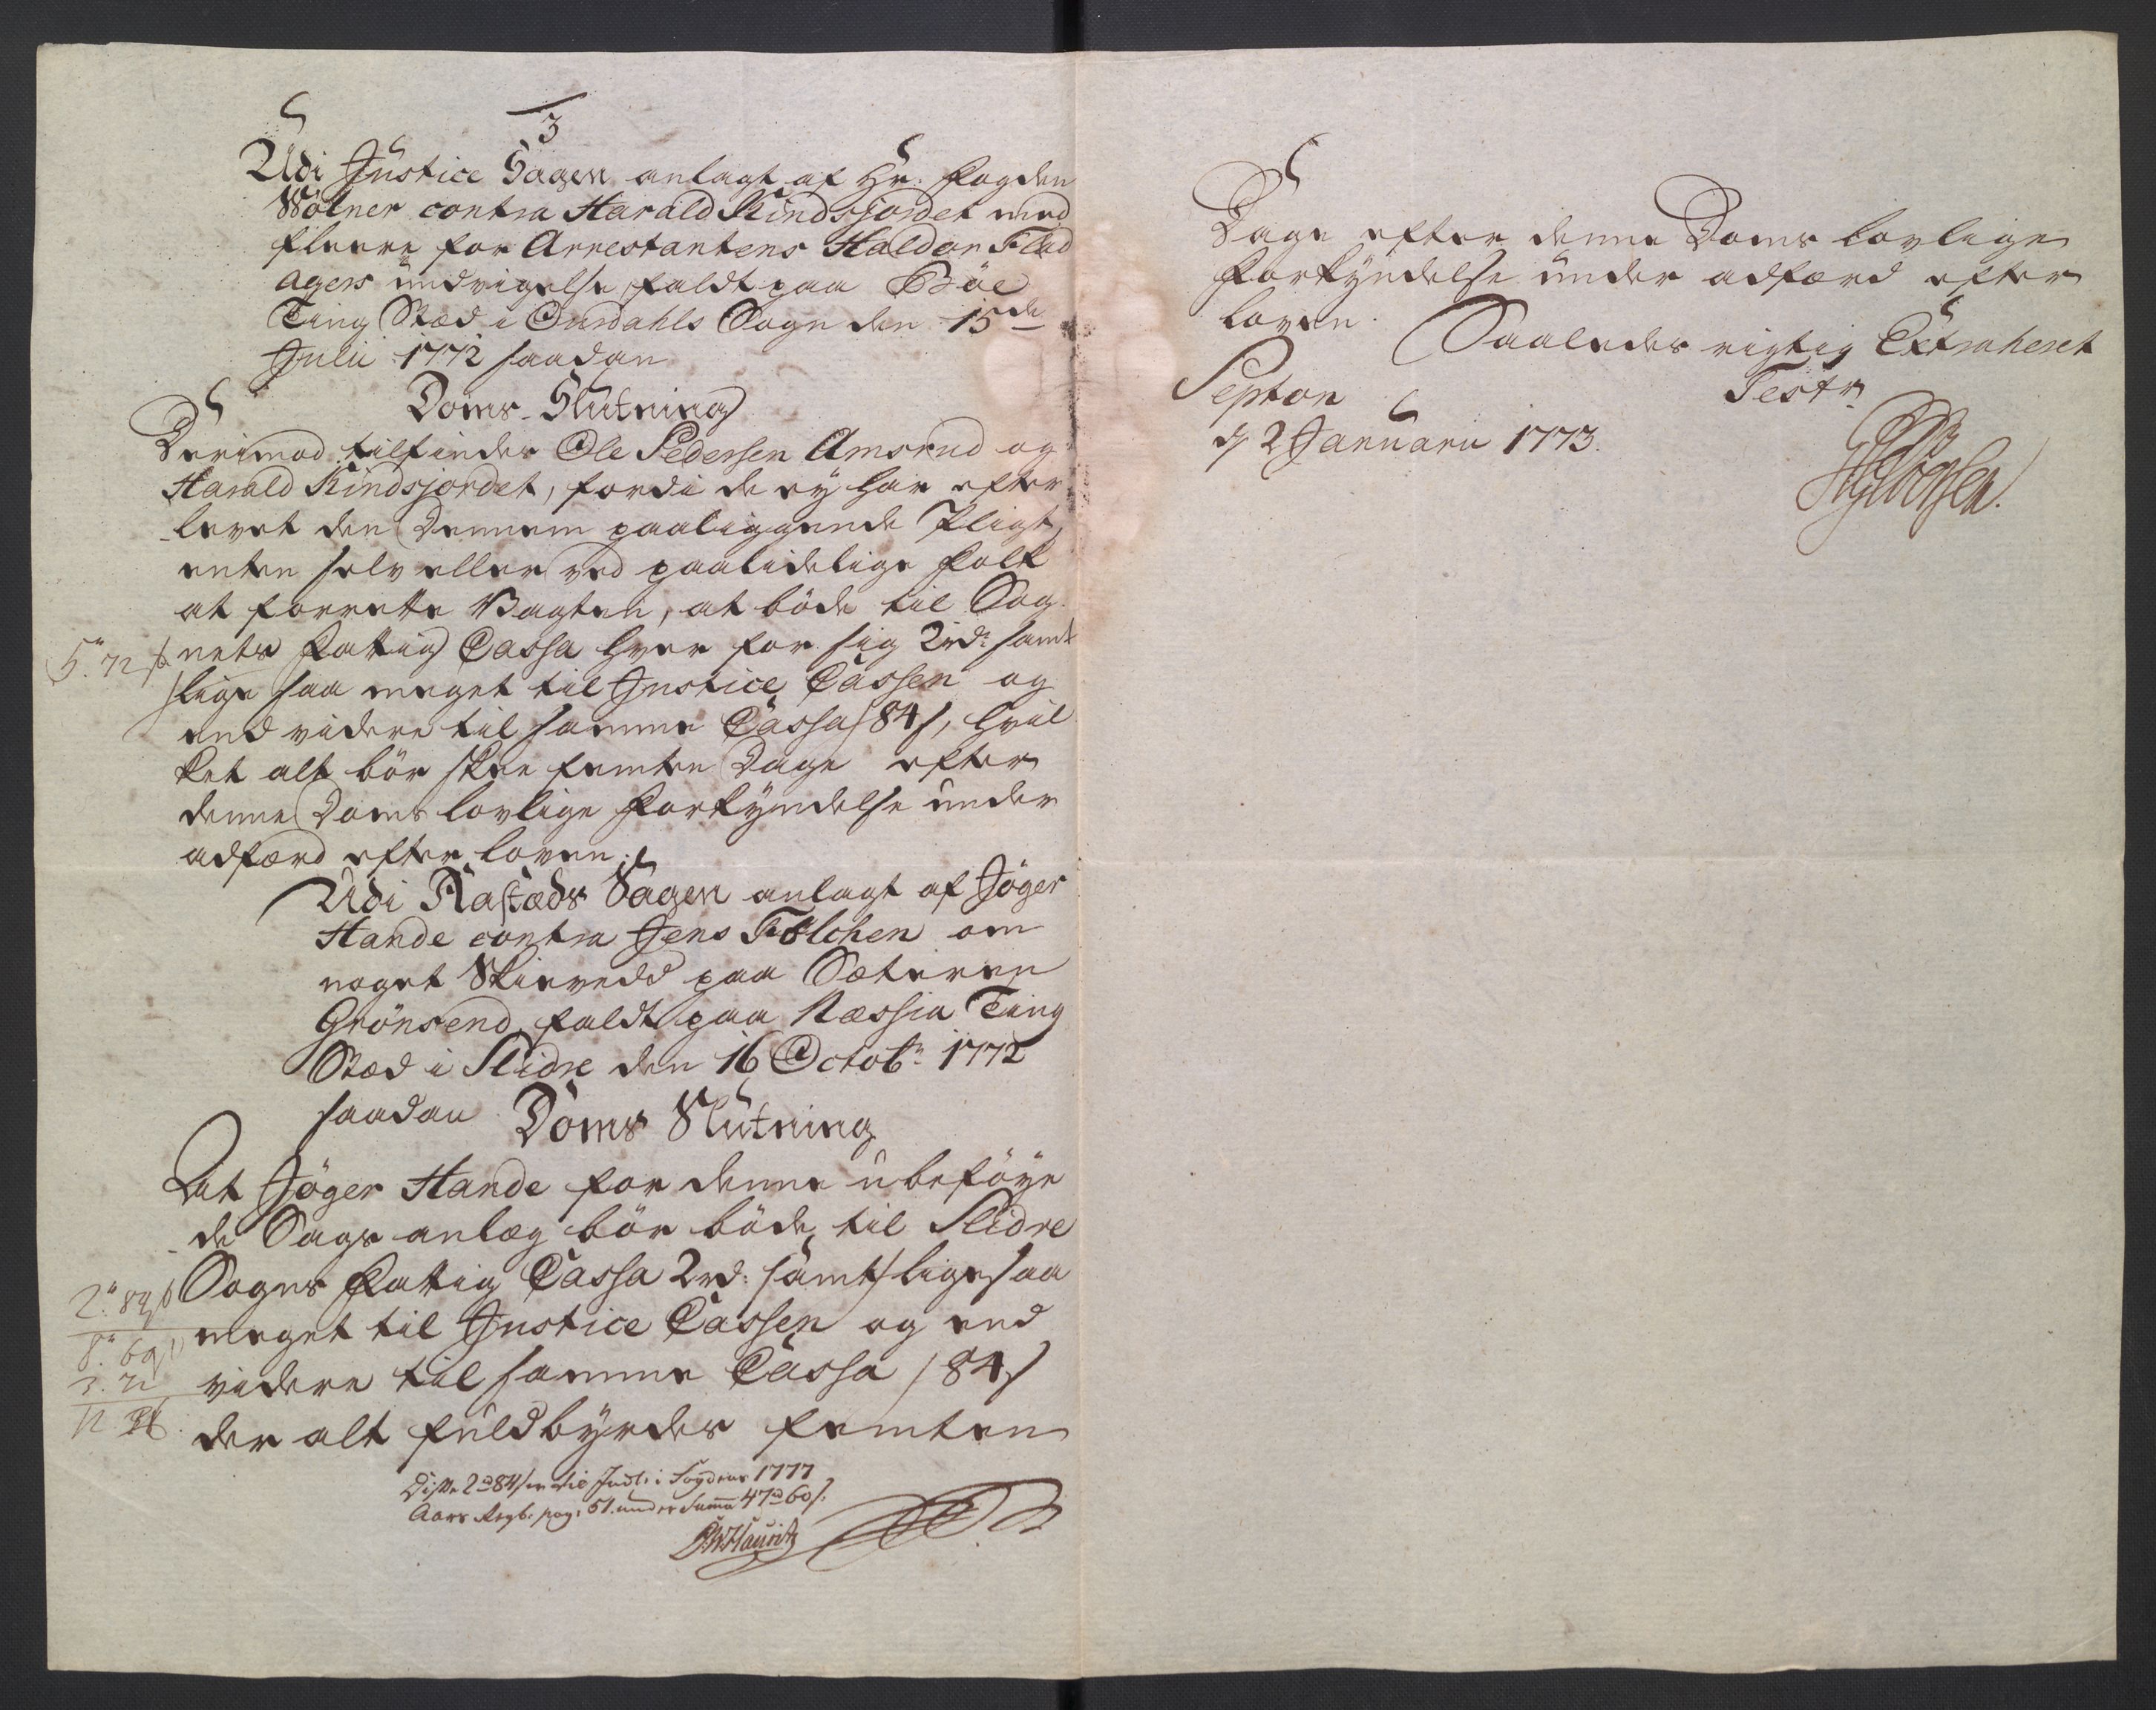 3
Udi Justice Sagen anlagt af Hr. Fogden
Wölner contra Harald Kindsjordet med
fleere for Arrestantens Haldor Flad
agers undvigelse, faldt paa Böe
Ting Stæd i Ourdahls Sogn den 15de
Julii 1772 saadan
Doms Slutning
Derimod tilfindes Ole Pedersen Amsrud og
Harald Kindsjordet, fordi de ey har efter
levet den Dennem paaliggende Pligt,
enten selv eller ved paalidelige Folk
at forrette Vagten, at böde til Sog
nets Fattig Cassa hver for sig 2rd: samt
5. 72 s
lige saa meget til Justice Cassen og
end videre til samme Cassa 84 s, hvil
ket alt bör skee femten Dage efter
denne Doms lovlige Forkyndelse under
adfærd efter loven.
Udi Aastæds Sagen anlagt af Jöger
Hande contra Jens Fölchen om
noget Skievedd paa Sæteren
Grönsend, faldt paa Næssia Ting
Stæd i Slidre den 16 Octobr 1772
saadan Doms Slutning
At Jöger Hande for denne ubeföye
de Sags anlæg bör böde til Slidre
Sogns Fattig Cassa 2rd: samt ligesaa
2. 84 s
meget til Justice Cassen og end
8. 69
videre til samme Cassa 84 s
der alt fuldbyrdes femten
Diste 2rd 84 s er til Indt. i Fogdens 1777
Aars Regb. pag. 51. under Summa 47rd 60 s.
Dage efter denne Doms lovlige
Forkyndelse under adfærd efter
loven.
Saaledes rigtig Extraheret
Septon
Testr
d 2 Januarii 1773.